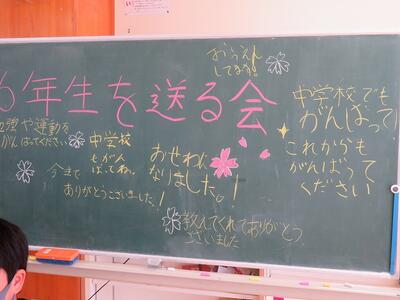 おうえん
してます!
6年生を送る会
勉強や運動を
がんばってください
中学校
もがん
ばってね。
今まで
ありがとうございました!
おせわに
なりました。!
中学校でも
がんばって!
これからも
がんばって
ください
教えてくれてありがとう
ございました